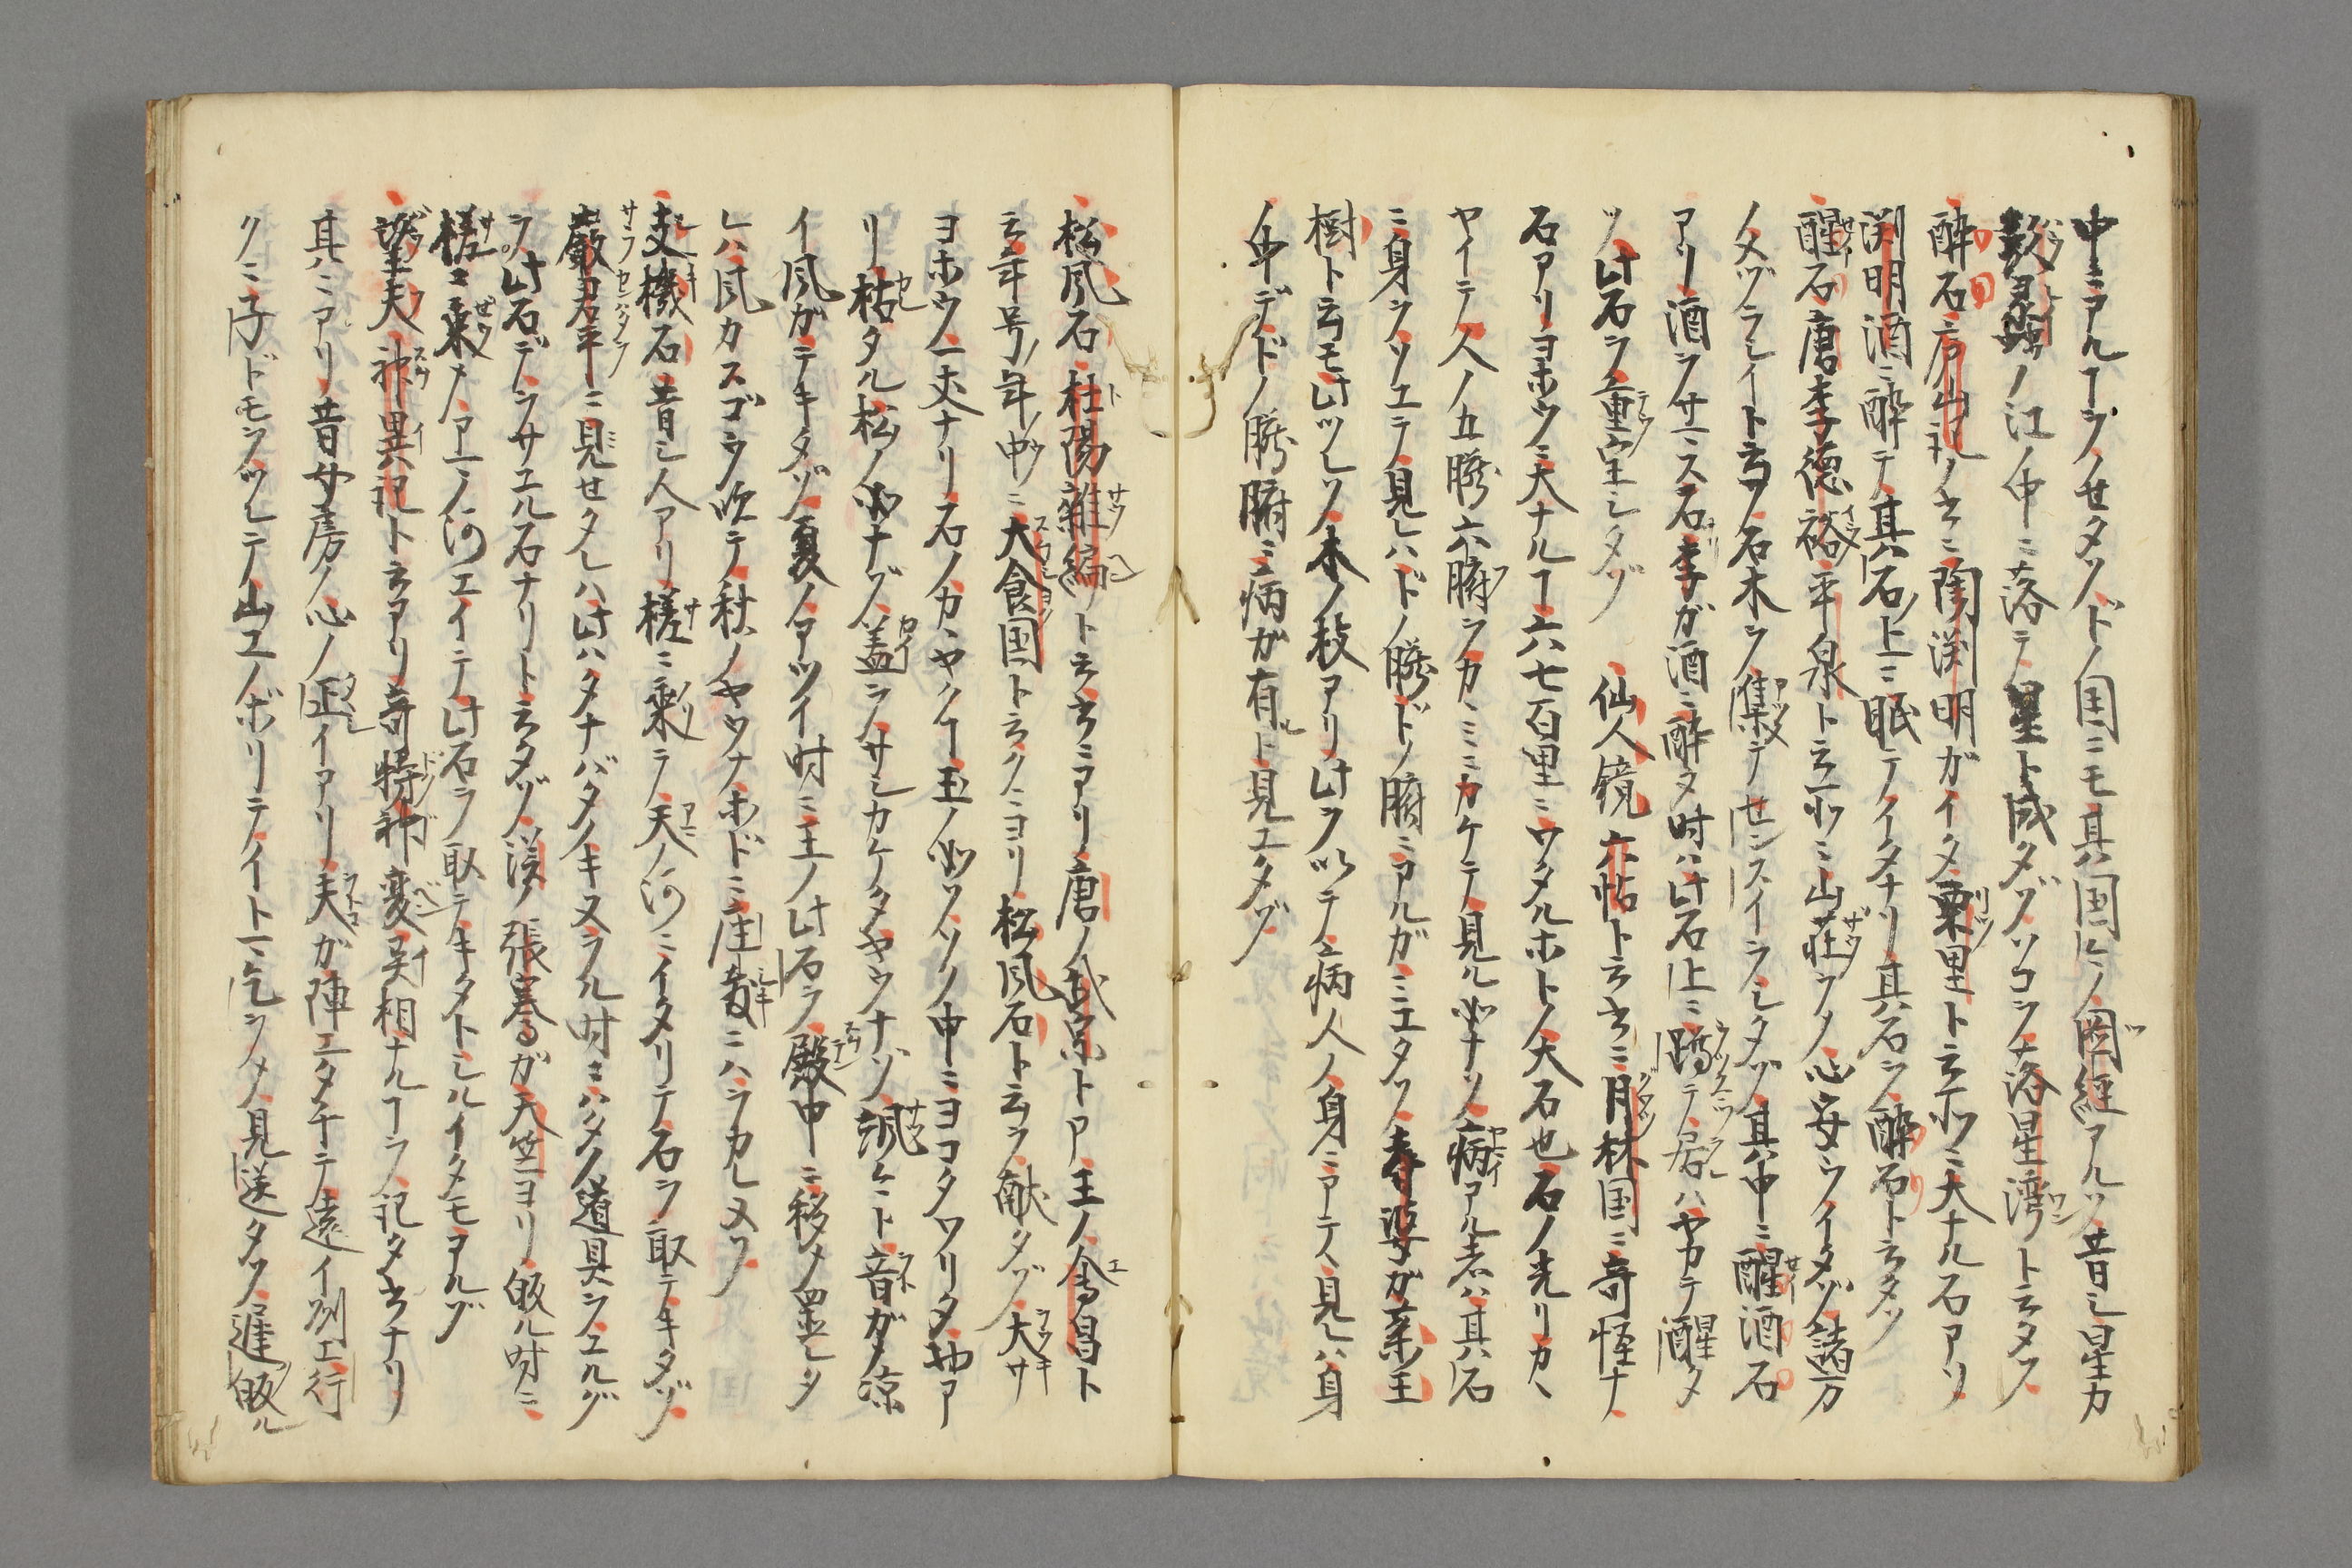 中ニアルヿヲノセタソドノ国ニモ其国〻ノ圖経アルソ昔シ星カ
彭蠡ノ江ノ中ニ落テ星ト成タゾソコヲ落星湾ト云タソ
酔石 庐山記ノ書ニ陶渕明ガイタ栗里ト云所ニ大ナル石アリ
渕明酒ニ酔テ其石ノ上ニ眠テイタナリ其石ヲ酔石ト云タソ
醒石 唐李徳裕平泉ト云所ニ山荘ヲメ心安ウイタゾ諸方
ノメヅラシイト云フ石木ヲ集テセンスイヲシタゾ其中ニ醒酒石
アリ酒ヲサマス石李ガ酒ニ酔タ時ハ此石上ニ蹲テ居ハヤカテ醒タ
ソ此石ヲ重宝シタゾ 仙人鏡 六帖ト云書ニ月林国ニ奇怪ナ
石アリヨホウニ大ナルヿ六七百里ニワタルホトノ大石也石ノ光リカヽ
ヤイテ人ノ五臓六腑ヲカヽミニカケテ見ル如ナソ病アル者ハ其石
ニ身ヲソエテ見レハドノ臓ドノ腑ニアルガミエタソ耆婆ガ薬王
樹ト云モ此ツレソ木ノ枝アリ此ヲ以テ病人ノ身ニアテヽ見レハ身
ノ中デドノ臓腑ニ病ガ有ト見エタゾ
松風石 杜陽雑編ト云書ニアリ唐ノ武宗ト申王ノ會昌ト
云年号ノ年中ニ大食国ト云クニヨリ松風石ト云ヲ献タゾ大サ
ヨホウ一丈ナリ石ノカヽヤクヿ玉ノ如ソソノ中ニヨコタワリタ物ア
リ枯タル松ノ如ナゾ盖ヲサシカケタヤウナゾ颯々ト音ガメ凉
イ風ガテキタゾ夏ノアツイ時ニ王ノ此石ヲ殿中ニ移メ置レタ
レハ風カスゴヲ吹テ秋ノヤウナホドニ座敷ニハヲカレヌソ
支機石 昔シ人アリ槎ニ乗テ天ノ河ニイタリテ石ヲ取テキタゾ
嚴君平ニ見セタレハ此ハタナバタノキヌヲル时ニハタノ道具ヲユルグ
ヲ此石デヲサエル石ナリト云タゾ漢ノ張騫ガ天竺ヨリ皈ル时ニ
槎ニ乗メアマノ河エイテ此石ヲ取テキタトシルイタモアルゾ
望夫 神異記ト云アリ奇特神変異相ナルヿヲ記タ書ナリ
其ニアリ昔女房ノ心ノ正イアリ夫ガ陣エタチテ遠イ処エ行
クニ子ドモヲツレテ山エノボリテイト乞ヲメ見送タソ進皈ル